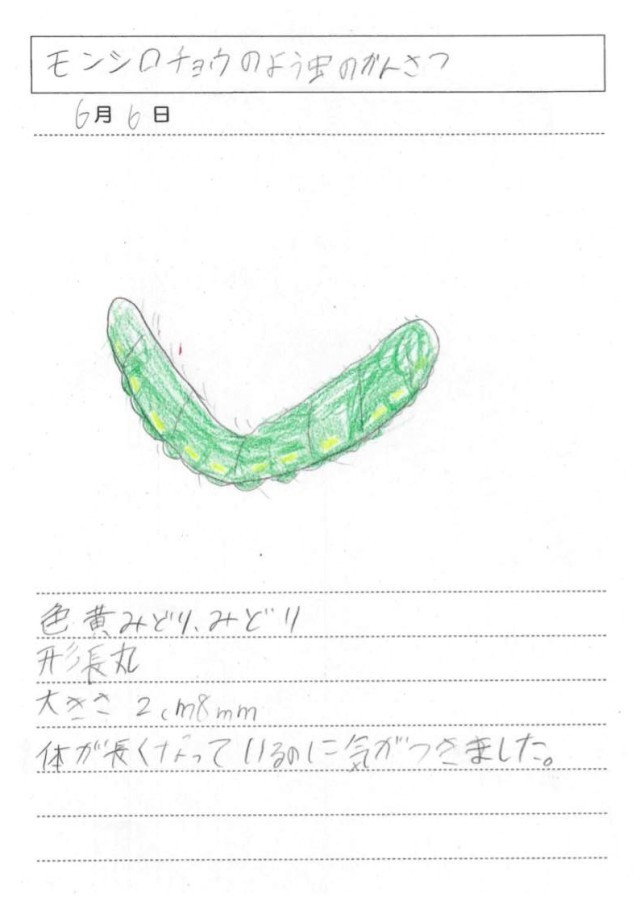 モンシロチョウのよう虫のかんさつ
6月6日
色 黄みどり、みどり
形 長丸
大きさ 2cm8mm
体が長くなっているのに気がつきました。